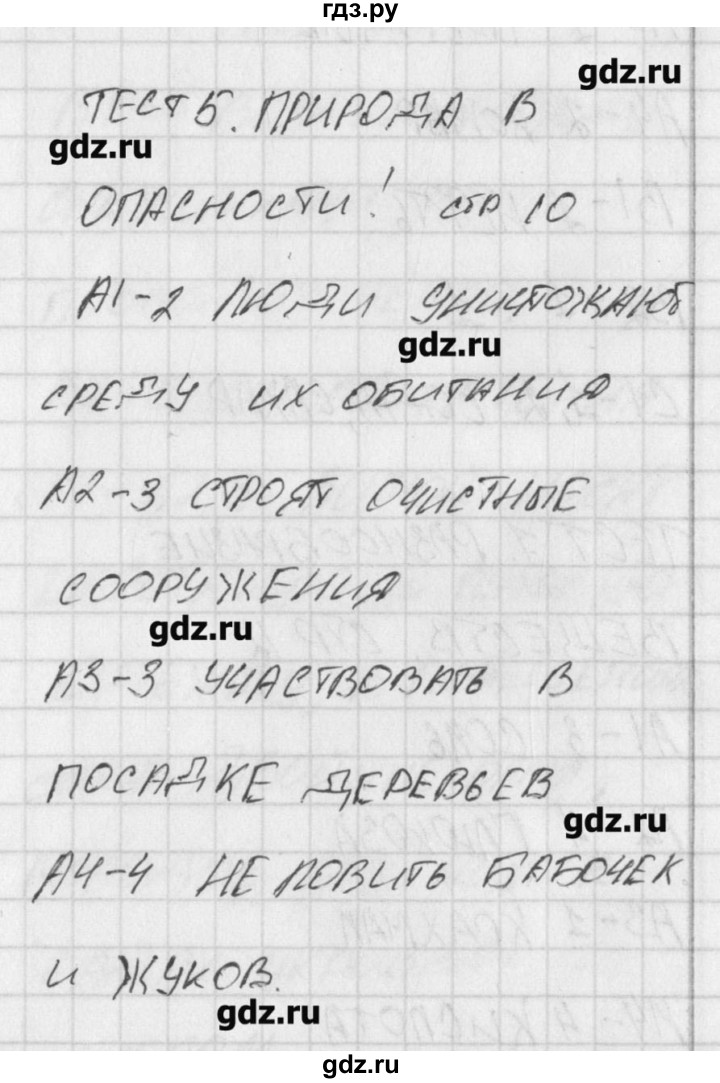 гдз.ру
gdz.ru
ТЕСТ 5. ПРИРОДА В
gdz.ru
ОПАСНОСТИ! СТР 10
А1-2 ЛЮДИ УНИЧТОЖАЮТ
gdz.ru
СРЕДУ ИХ ОБИТАНИЯ
А2-3 СТРОЯТ ОЧИСТНЫЕ
СООРУЖЕНИЯ
gdz.ru
А3-3 УЧАСТВОВАТЬ В
ПОСАДКЕ ДЕРЕВЬЕВ
gdz.ru
А4-4 НЕ ЛОВИТЬ БАБОЧЕК
И ЖУКОВ.
gdz.ru
gdz.ru